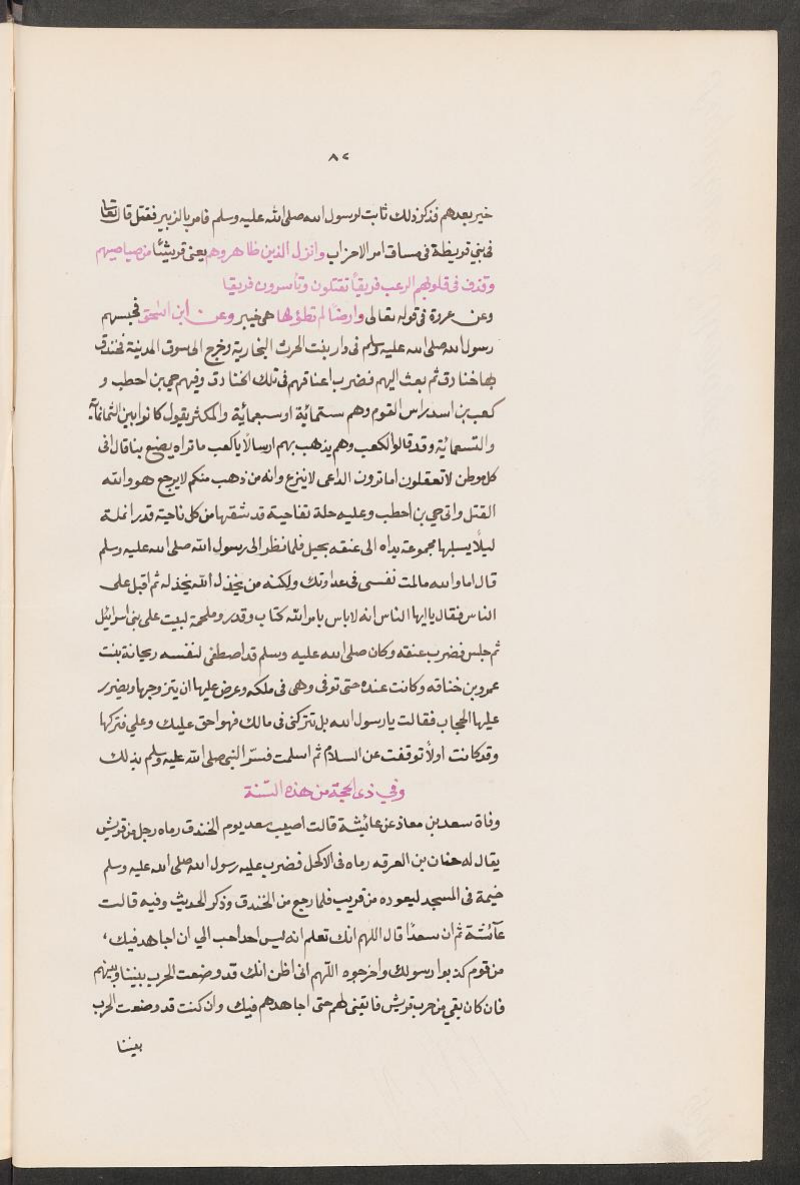 ٨٢
خير بعدهم فذكر ذلك ثابت لرسول الله صلى الله عليه وسلم فامر بالزبير فقتل قال تعالى
في بني قريظة في مساق امر الاحزاب وانزل الذين ظاهروهم يعني قريشا من صياصيهم
وقذف في قلوبهم الرعب فريقا تقتلون وتأسرون فريقا
وعن عروة في قوله تعالى وارضا لم تطؤلها هي خيبر وعن ابن اسحق فحبسهم
رسول الله صلى الله عليه وسلم في دار بنت الحرث النجارية وخرج الى سوق المدينة فخندق
بها خنادق ثم بعث اليهم فضرب اعناقهم في تلك الخنادق وفيهم حيي بن احطب و
كعب بن اسد راس القوم وهم ستمائة او سبعمائة والمكثر يقول كانوا بين الثمانمائة
والتسعمائة وقد قالوا لكعب وهم يذهب بهم ارسالا يا كعب ما تراه يصنع بنا قال افي
كل موطن لا تعقلون اما ترون الداعي لا ينزع وانه من ذهب منكم لا يرجع هو والله
القتل واتي حيي بن احطب وعليه حلة تفاحية قد شقها من كل ناحية قدر انملة
ليلا يسلبها مجموعة يداه الى عنقه بحبل فلما نظر الى رسول الله صلى الله عليه وسلم
قال اما والله ما لمت نفسي في عداوتك ولكنه من يخذل الله يخذله ثم اقبل على
الناس فقال يا ايها الناس انه لا باس بامر الله كتاب وقدر وملحمة لبيت على بني اسرائيل
ثم جلس فضرب عنقه وكان صلى الله عليه وسلم قد اصطفى لنفسه ريحانة بنت
عمرو بن خنافه وكانت عنده حتى توفي وهي في ملكه وعرض عليها ان يتزوجها ويضرب
عليها الحجاب فقالت يا رسول الله بل تتركني في مالك فهو احق عليك وعلي فتركها
وقد كانت اولا توقفت عن السلام ثم اسلمت فسرّ النبي صلى الله عليه وسلم بذلك
وفي ذي الحجة من هذه السنة
وفاة سعد بن معاذ عن عائشة قالت اصيب سعد يوم الخندق رماه رجل من قريش
يقال له حنان بن العرقه رماه في الاكحل فضرب عليه رسول الله صلى الله عليه وسلم
خيمة في المسجد ليعوده من قريب فلما رجع من الخندق وذكر الحديث وفيه قالت
عآئشة ثم ان سعدًا قال اللهم انك تعلم انه ليس احد احب الي ان اجاهد فيك،
من قوم كذبوا رسولك واخرجوه اللهم اني اظن انك قد وضعت الحرب بيننا وبينهم
فان كان بقي من حرب قريش فابقني لهم حتى اجاهدهم فيك وان كنت قد وضعت الحرب
بيننا